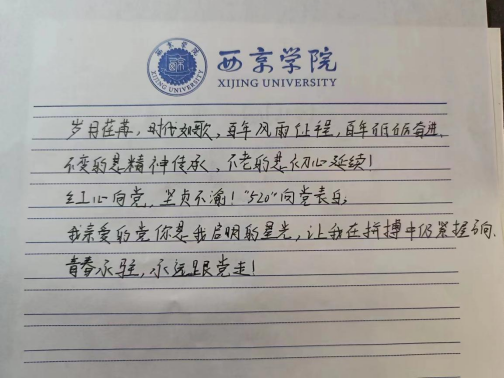 西京学院
XIJING UNIVERSITY
西京学院
XIJING UNIVERSITY
岁月荏苒，时代如歌，百年风雨征程，百年砥砺奋进，
不变的是精神传承，不老的是初心延续！
红心向党，坚贞不渝！“520”向党表白：
我亲爱的党你是我启明的星光，让我在拼搏中仍紧握方向，
青春永驻，永远跟党走！